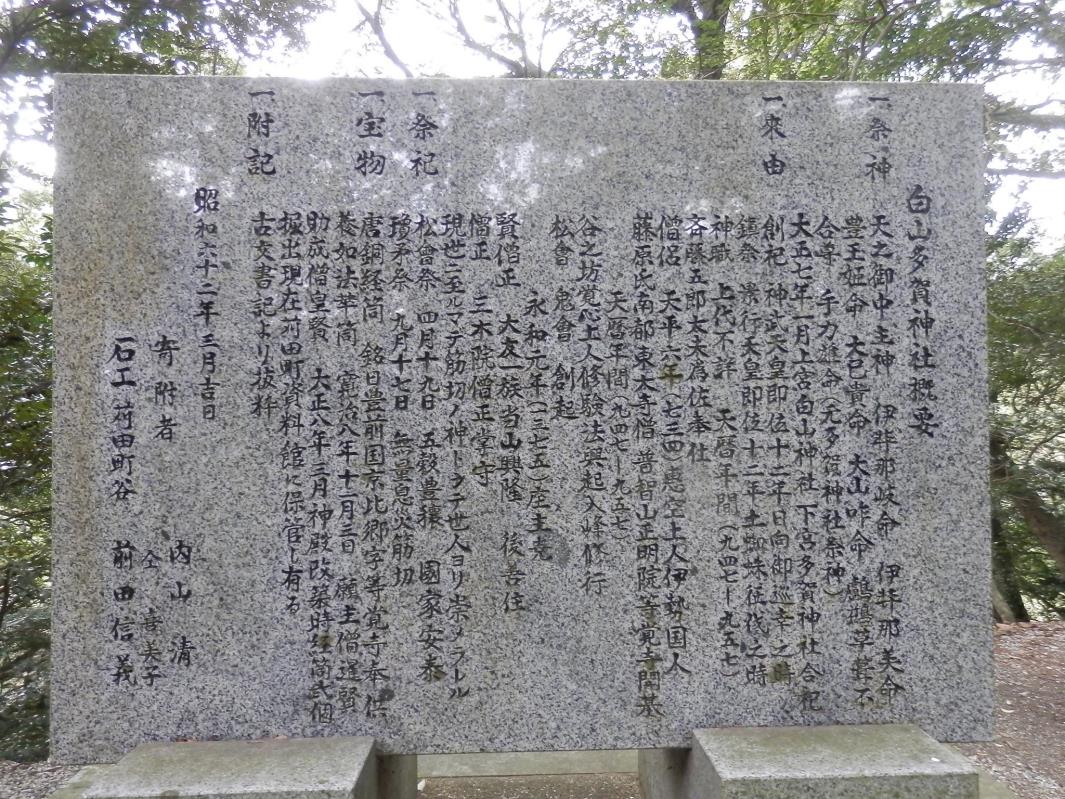 白山多賀神社概要
一祭神 天之御中主神 伊弉那岐命 伊弉那美命
豊玉姫命 大巳貴命 大山咋命 鸕鷀草葺不
合尊 手力雄命(元多賀神社祭神)
大正七年一月上宮白山神社下宮多賀神社合祀
一來由 創祀 神武天皇即位十二年日向御巡幸之時
鎮祭 景行天皇即位十二年土蜘蛛征伐之時
神職 上代不詳 天暦年間(九四七ー九五七)
斉藤五郎太夫為佐奉仕
僧侶 天平六年(七三四)恵空上人伊勢国人
藤原氏南都東大寺僧普智山正明院等覚寺開基
天暦年間(九四七ー九五七)
谷之坊覚心上人修験法興起入峰修行
松會 鬼會 創起
永和元年(一三七五)座主尭
賢僧正 大友一族当山興隆 後善住
僧正 三木院僧正掌守
現世ニ至ルマデ筋切ノ神トシテ世人ヨリ崇メラトル
一祭祀 松會祭 四月十九日 五穀豊穣 國家安泰
瓊矛祭 九月十七日 無量息災筋切
一宝物 唐銅経筒 銘曰豊前国京北郷字等覚寺奉供
養如法華筒 寛治八年十二月三日 願主僧運賢
助成僧皇賢 大正八年三月神殿改築時経筒弐個
掘出現在苅田町資料館に保管し有る
一附記 古文書記より抜粋
昭和六十二年三月吉日
寄附者 内山 清
仝 喜美子
石工 苅田町谷 前田信義